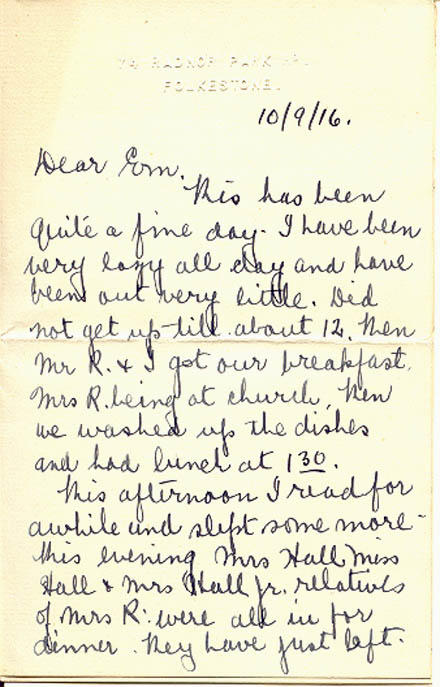 74 RADNOR PARK
FOLKESTONE.
10/9/16.
Dear Ern.
This has been
quite a fine day. I have been
very lazy all day and have
been out very little. Did
not get up till about 12. Then
Mr R. & I got our breakfast,
Mrs R. being at church, then
we washed up the dishes
and had lunch at 1 30.
This afternoon I read for
awhile and slept some more -
this evening Mrs Hall, Miss
Hall & Mrs Hall jr. relatives
of Mrs R. were all in for
dinner. They have just left.